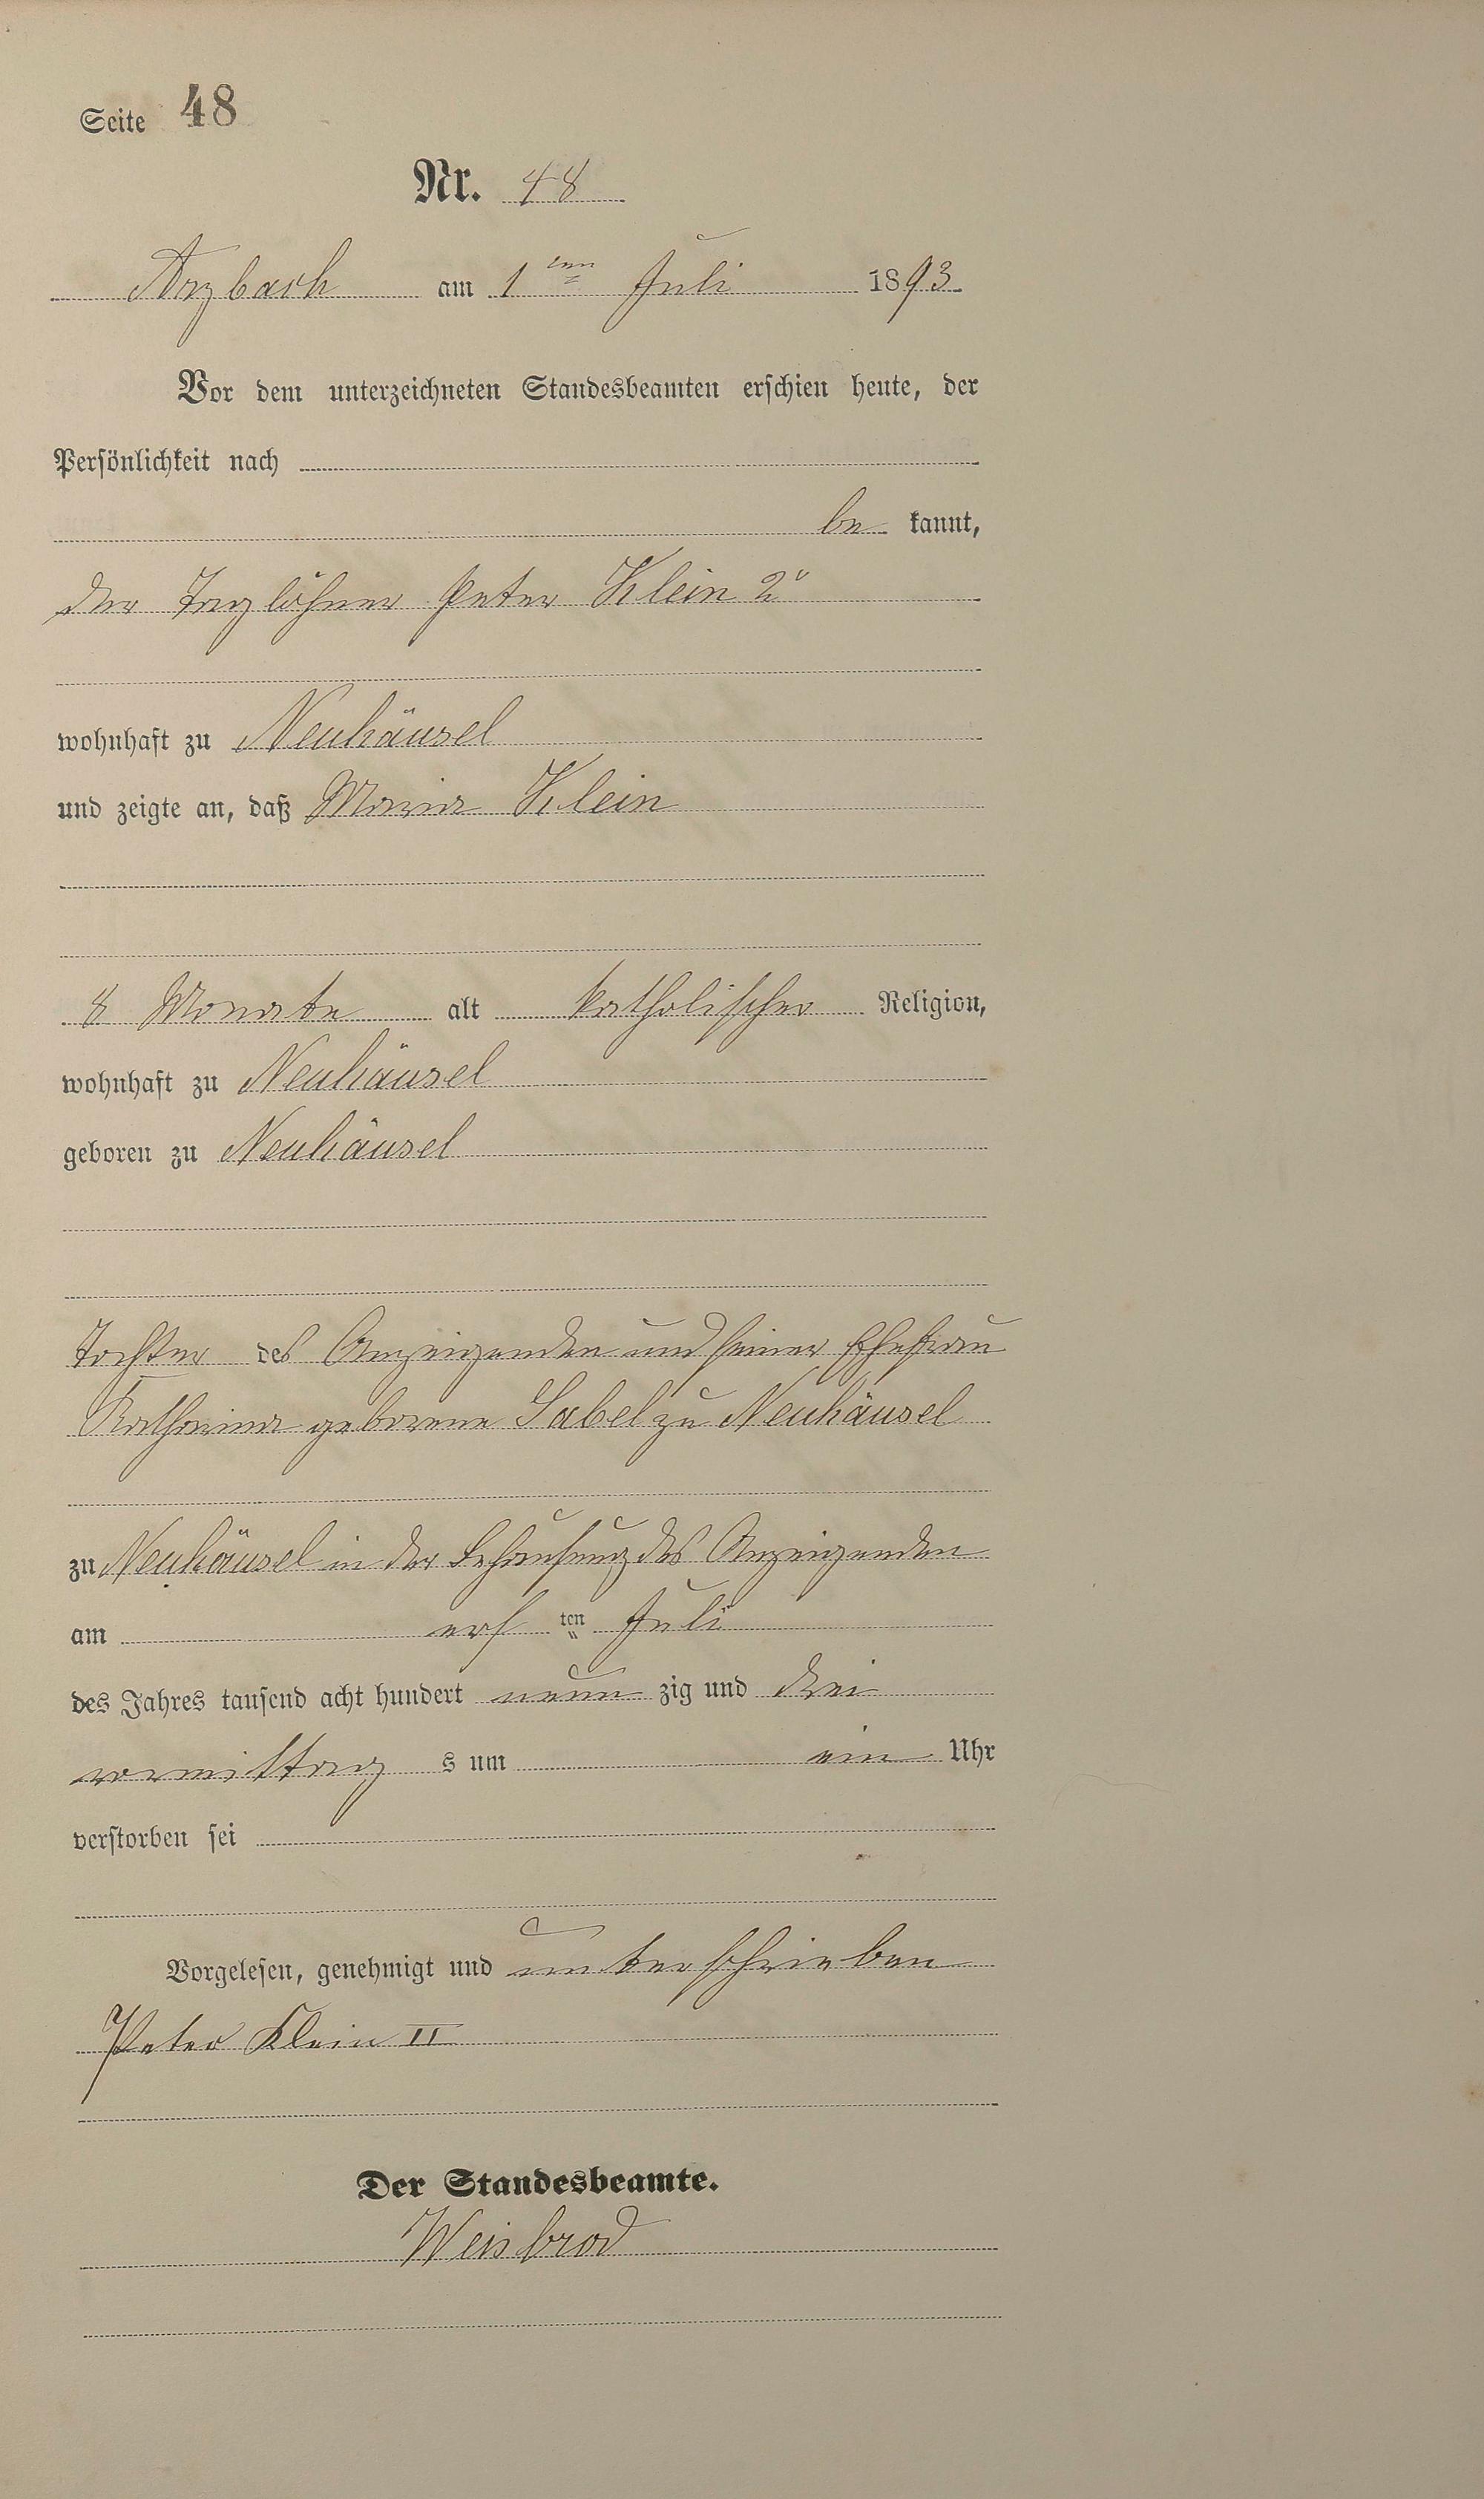 Seite 48
Nr. 48
Arzbach am 1ten Juli 1893.
Vor dem unterzeichneten Standesbeamten erschien heute, der
Persönlichkeit nach
be kannt,
der Taglöhner Peter Klein 2r
wohnhaft zu Neuhäusel
und zeigte an, daß Maria Klein
8 Monate alt katholischer Religion,
wohnhaft zu Neuhäusel
geboren zu Neuhäusel
Tochter des Anzeigenden und seiner Ehefrau
Katharina geborene Sabel zu Neuhäusel
zu Neuhäusel in der Behausung des Anzeigenden
am ers ten Juli
des Jahres tausend acht hundert neun zig und drei
vormittag s um ein Uhr
verstorben sei
Vorgelesen, genehmigt und unterschrieben
Peter Klein II
Der Standesbeamte.
Weisbrod